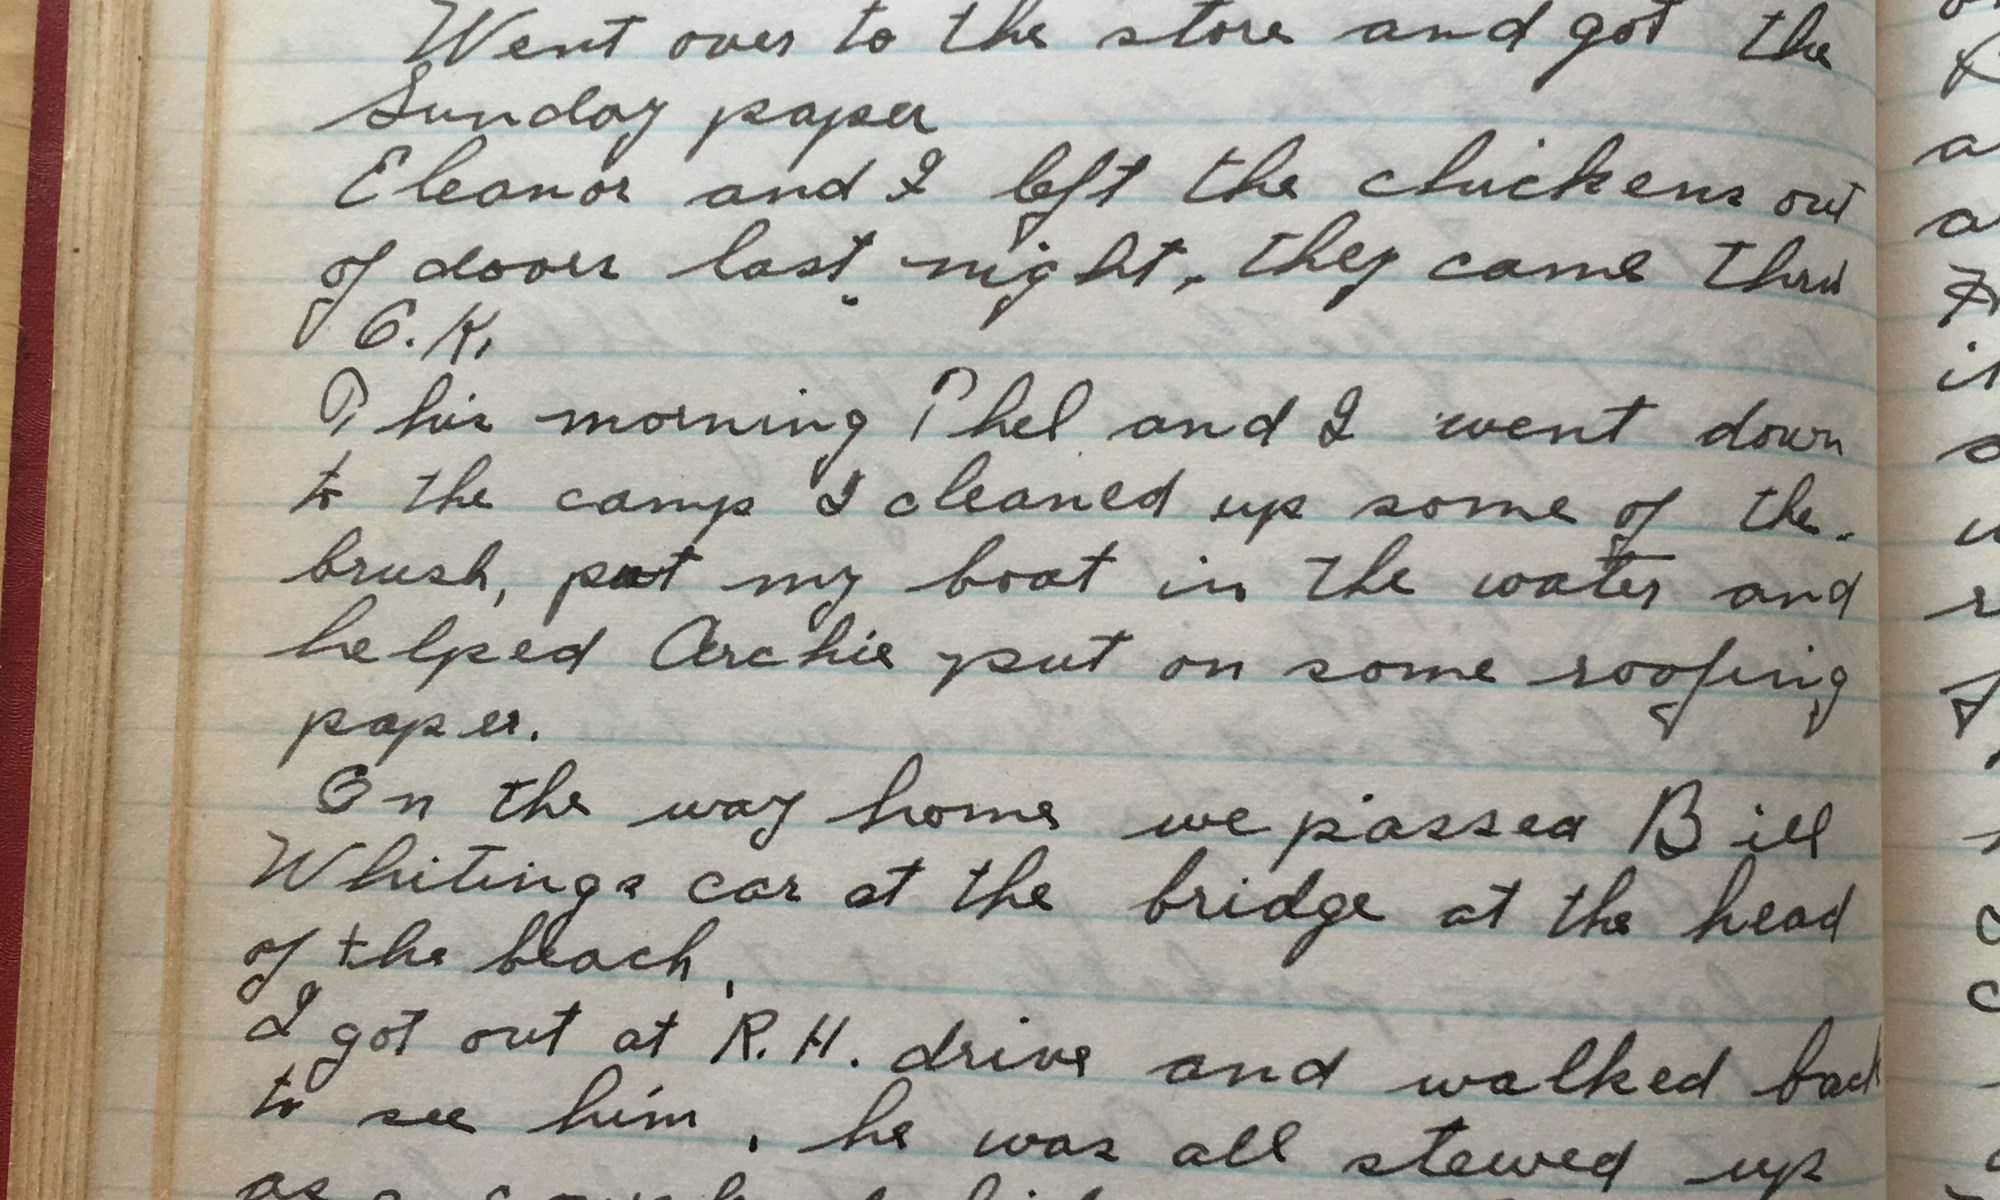 Went over to the store and got the
Sunday paper
Eleanor and I left the chickens out
of doors last night, they came thru
O.K.
This morning Phel and I went down
to the camp I cleaned up some of the
brush, put my boat in the water and
helped Archie put on some roofing
paper.
On the way home we passed Bill
Whitings car at the bridge at the head
of the beach,
I got out at R.H. drive and walked back
to see him, he was all stewed up
as a